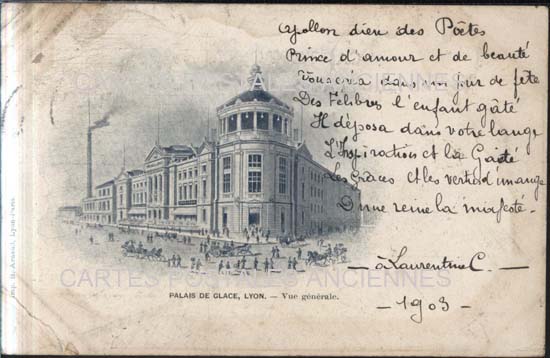 Apollon dieu des Poètes
Prince d'amour et de beauté
Vous créa dans un jour de fête
Des Félibres l'enfant gâté
Il déposa dans votre lange
L'Inspiration et la Gaité
Les Grâces et les vertus d'un ange
D'une reine la majesté.
— à Laurentine C. —
— 1903 —
CARTES POSTALES ANCIENNES
PALAIS DE GLACE, LYON. — Vue générale.